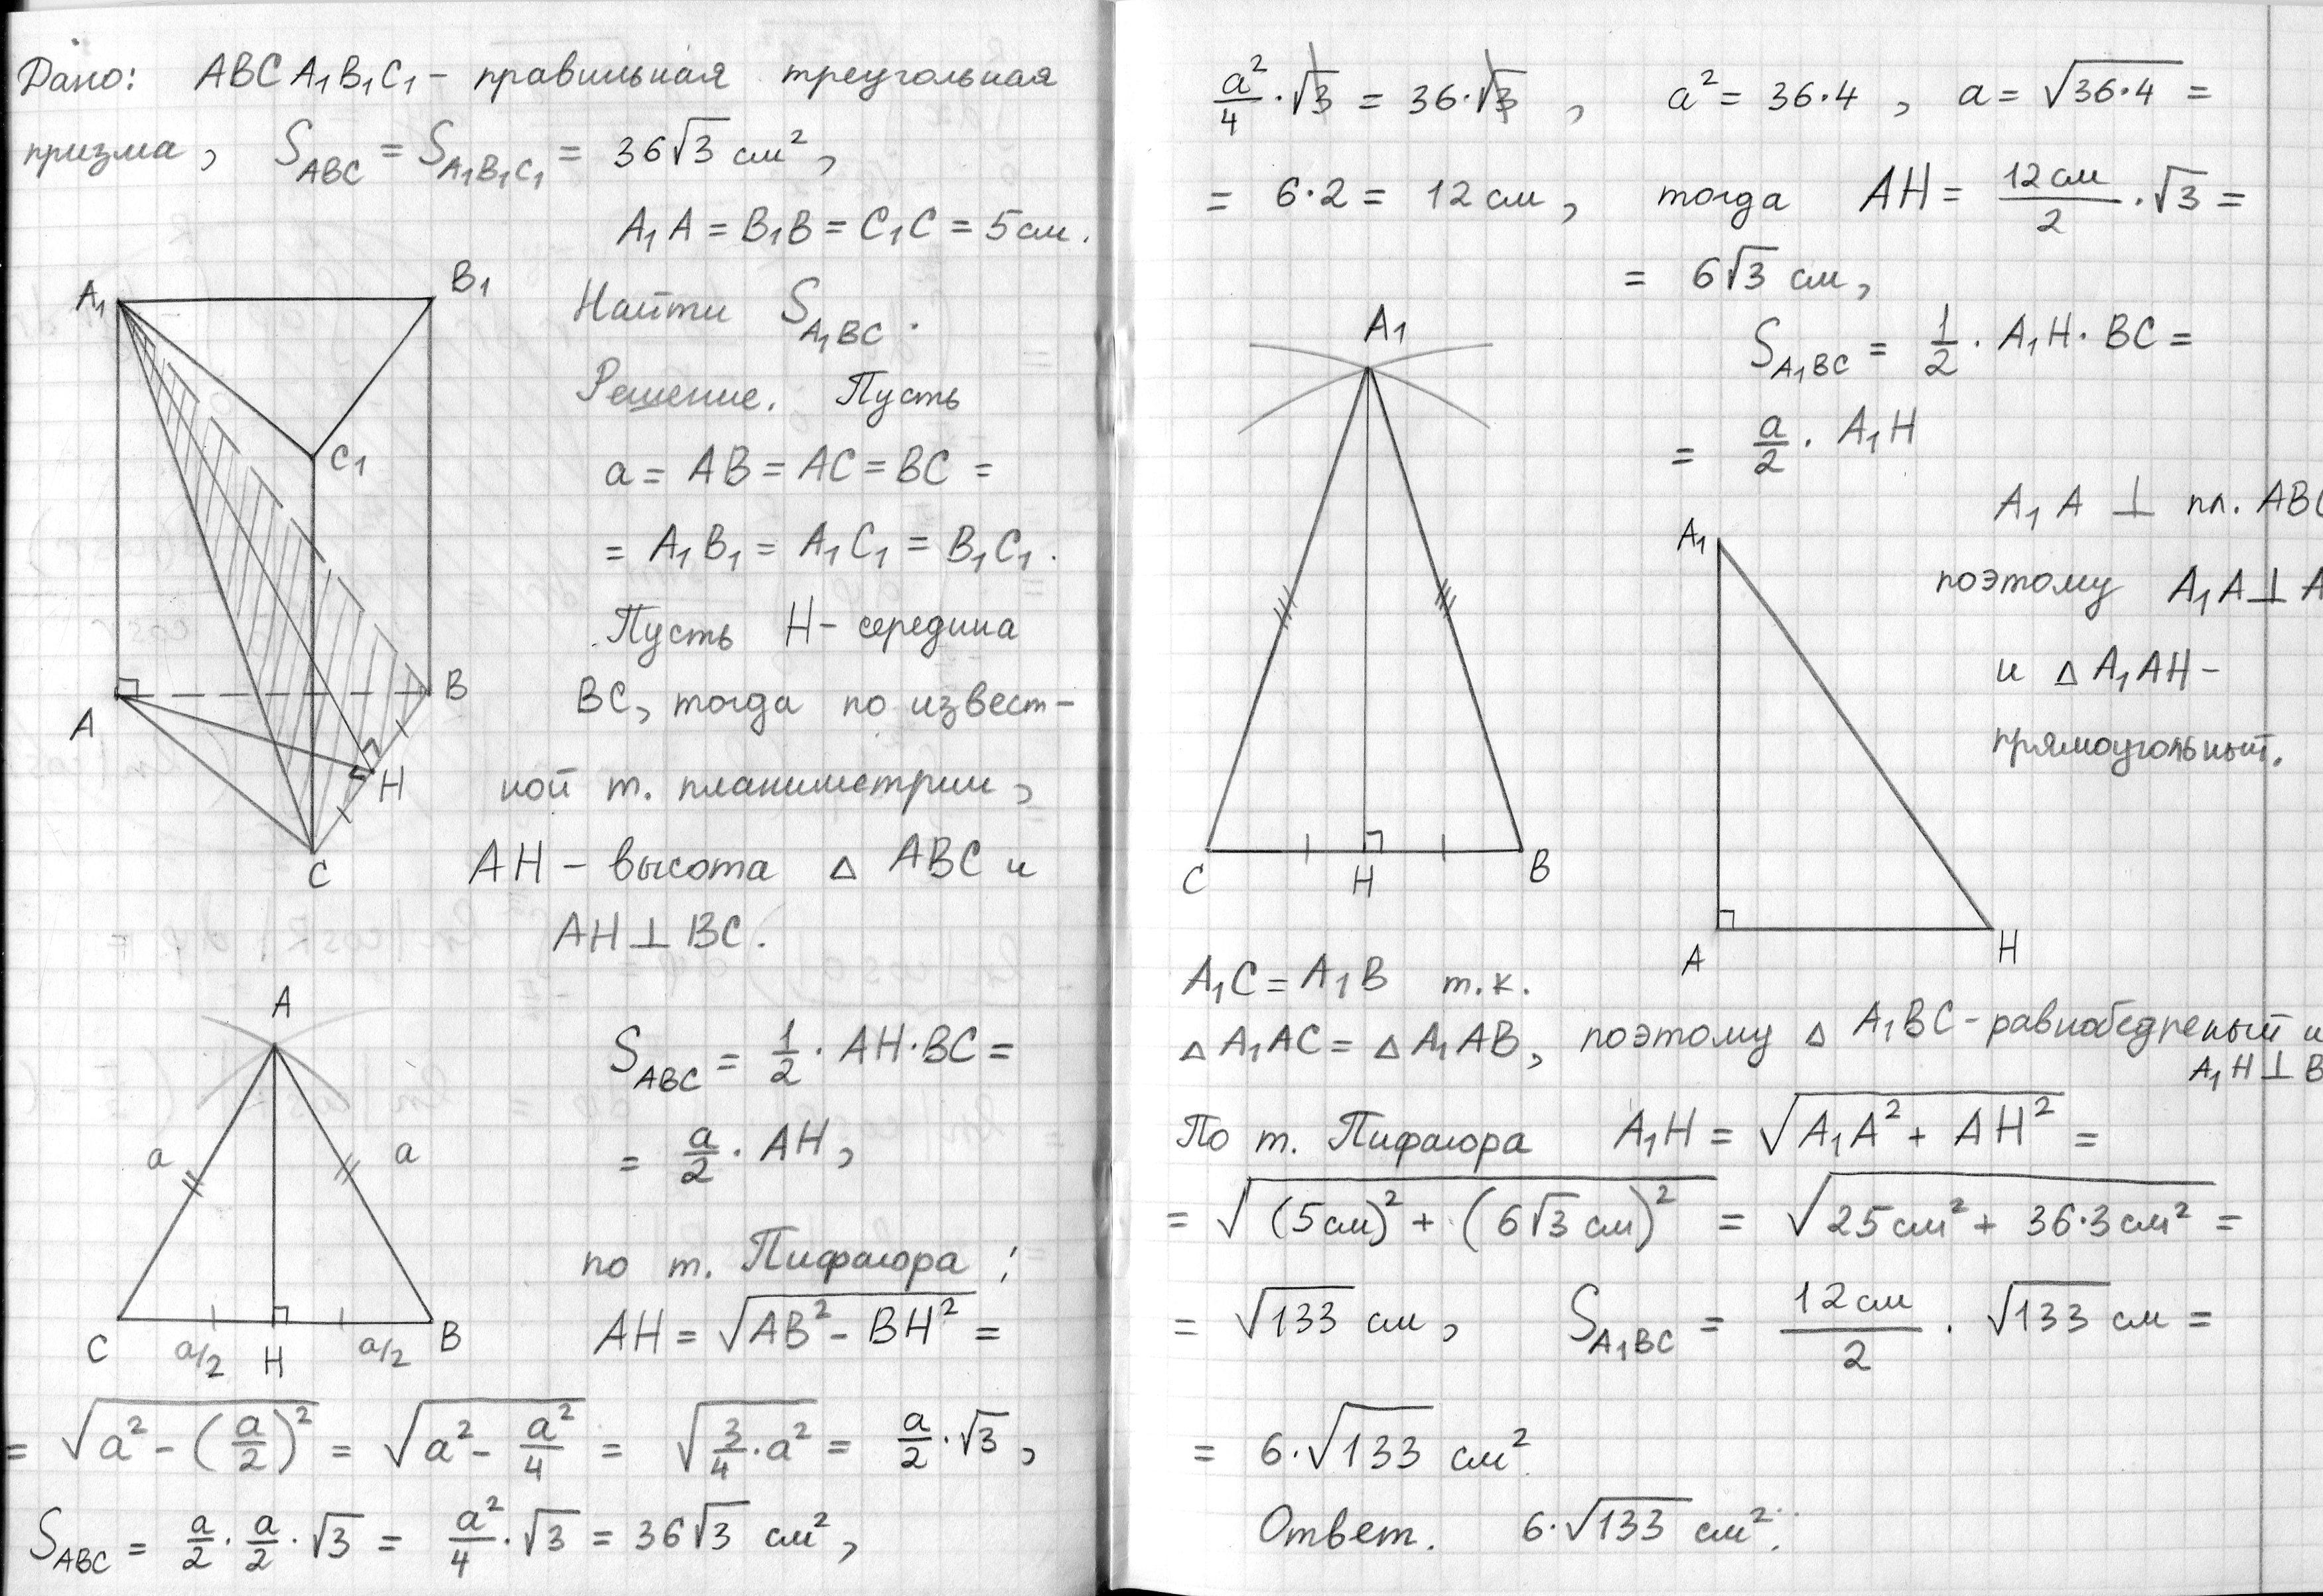 Дано: ABCA₁B₁C₁ – правильная треугольная
призма, S_ABC = S_A₁B₁C₁ = 36√3 см²,
A₁A = B₁B = C₁C = 5 см.
Найти S_A₁BC.
Решение. Пусть
a = AB = AC = BC =
= A₁B₁ = A₁C₁ = B₁C₁.
Пусть H – середина
BC, тогда по извест-
ной т. планиметрии,
AH – высота △ ABC и
AH ⊥ BC.
A₁
B₁
C₁
A
B
H
C
S_ABC = 1/2 · AH · BC =
= a/2 · AH,
по т. Пифагора:
AH = √(AB² – BH²) =
A
a
a
C
a/2
H
a/2
B
= √(a² – (a/2)²) = √(a² – a²/4) = √(3/4 · a²) = a/2 · √3,
S_ABC = a/2 · a/2 · √3 = a²/4 · √3 = 36√3 см²,
a²/4 · √3 = 36 · √3, a² = 36·4, a = √(36·4) =
= 6·2 = 12 см, тогда AH = 12 см/2 · √3 =
= 6√3 см,
S_A₁BC = 1/2 · A₁H · BC =
= a/2 · A₁H
A₁A ⊥ пл. ABC
поэтому A₁A ⊥ A
и △ A₁AH –
прямоугольный.
A₁
C
H
B
A₁
A
H
A₁C = A₁B т.к.
△ A₁AC = △ A₁AB, поэтому △ A₁BC – равнобедреный и
A₁H ⊥ B
По т. Пифагора A₁H = √(A₁A² + AH²) =
= √((5 см)² + (6√3 см)²) = √(25 см² + 36·3 см²) =
= √133 см, S_A₁BC = 12 см/2 · √133 см =
= 6·√133 см²
Ответ. 6·√133 см².